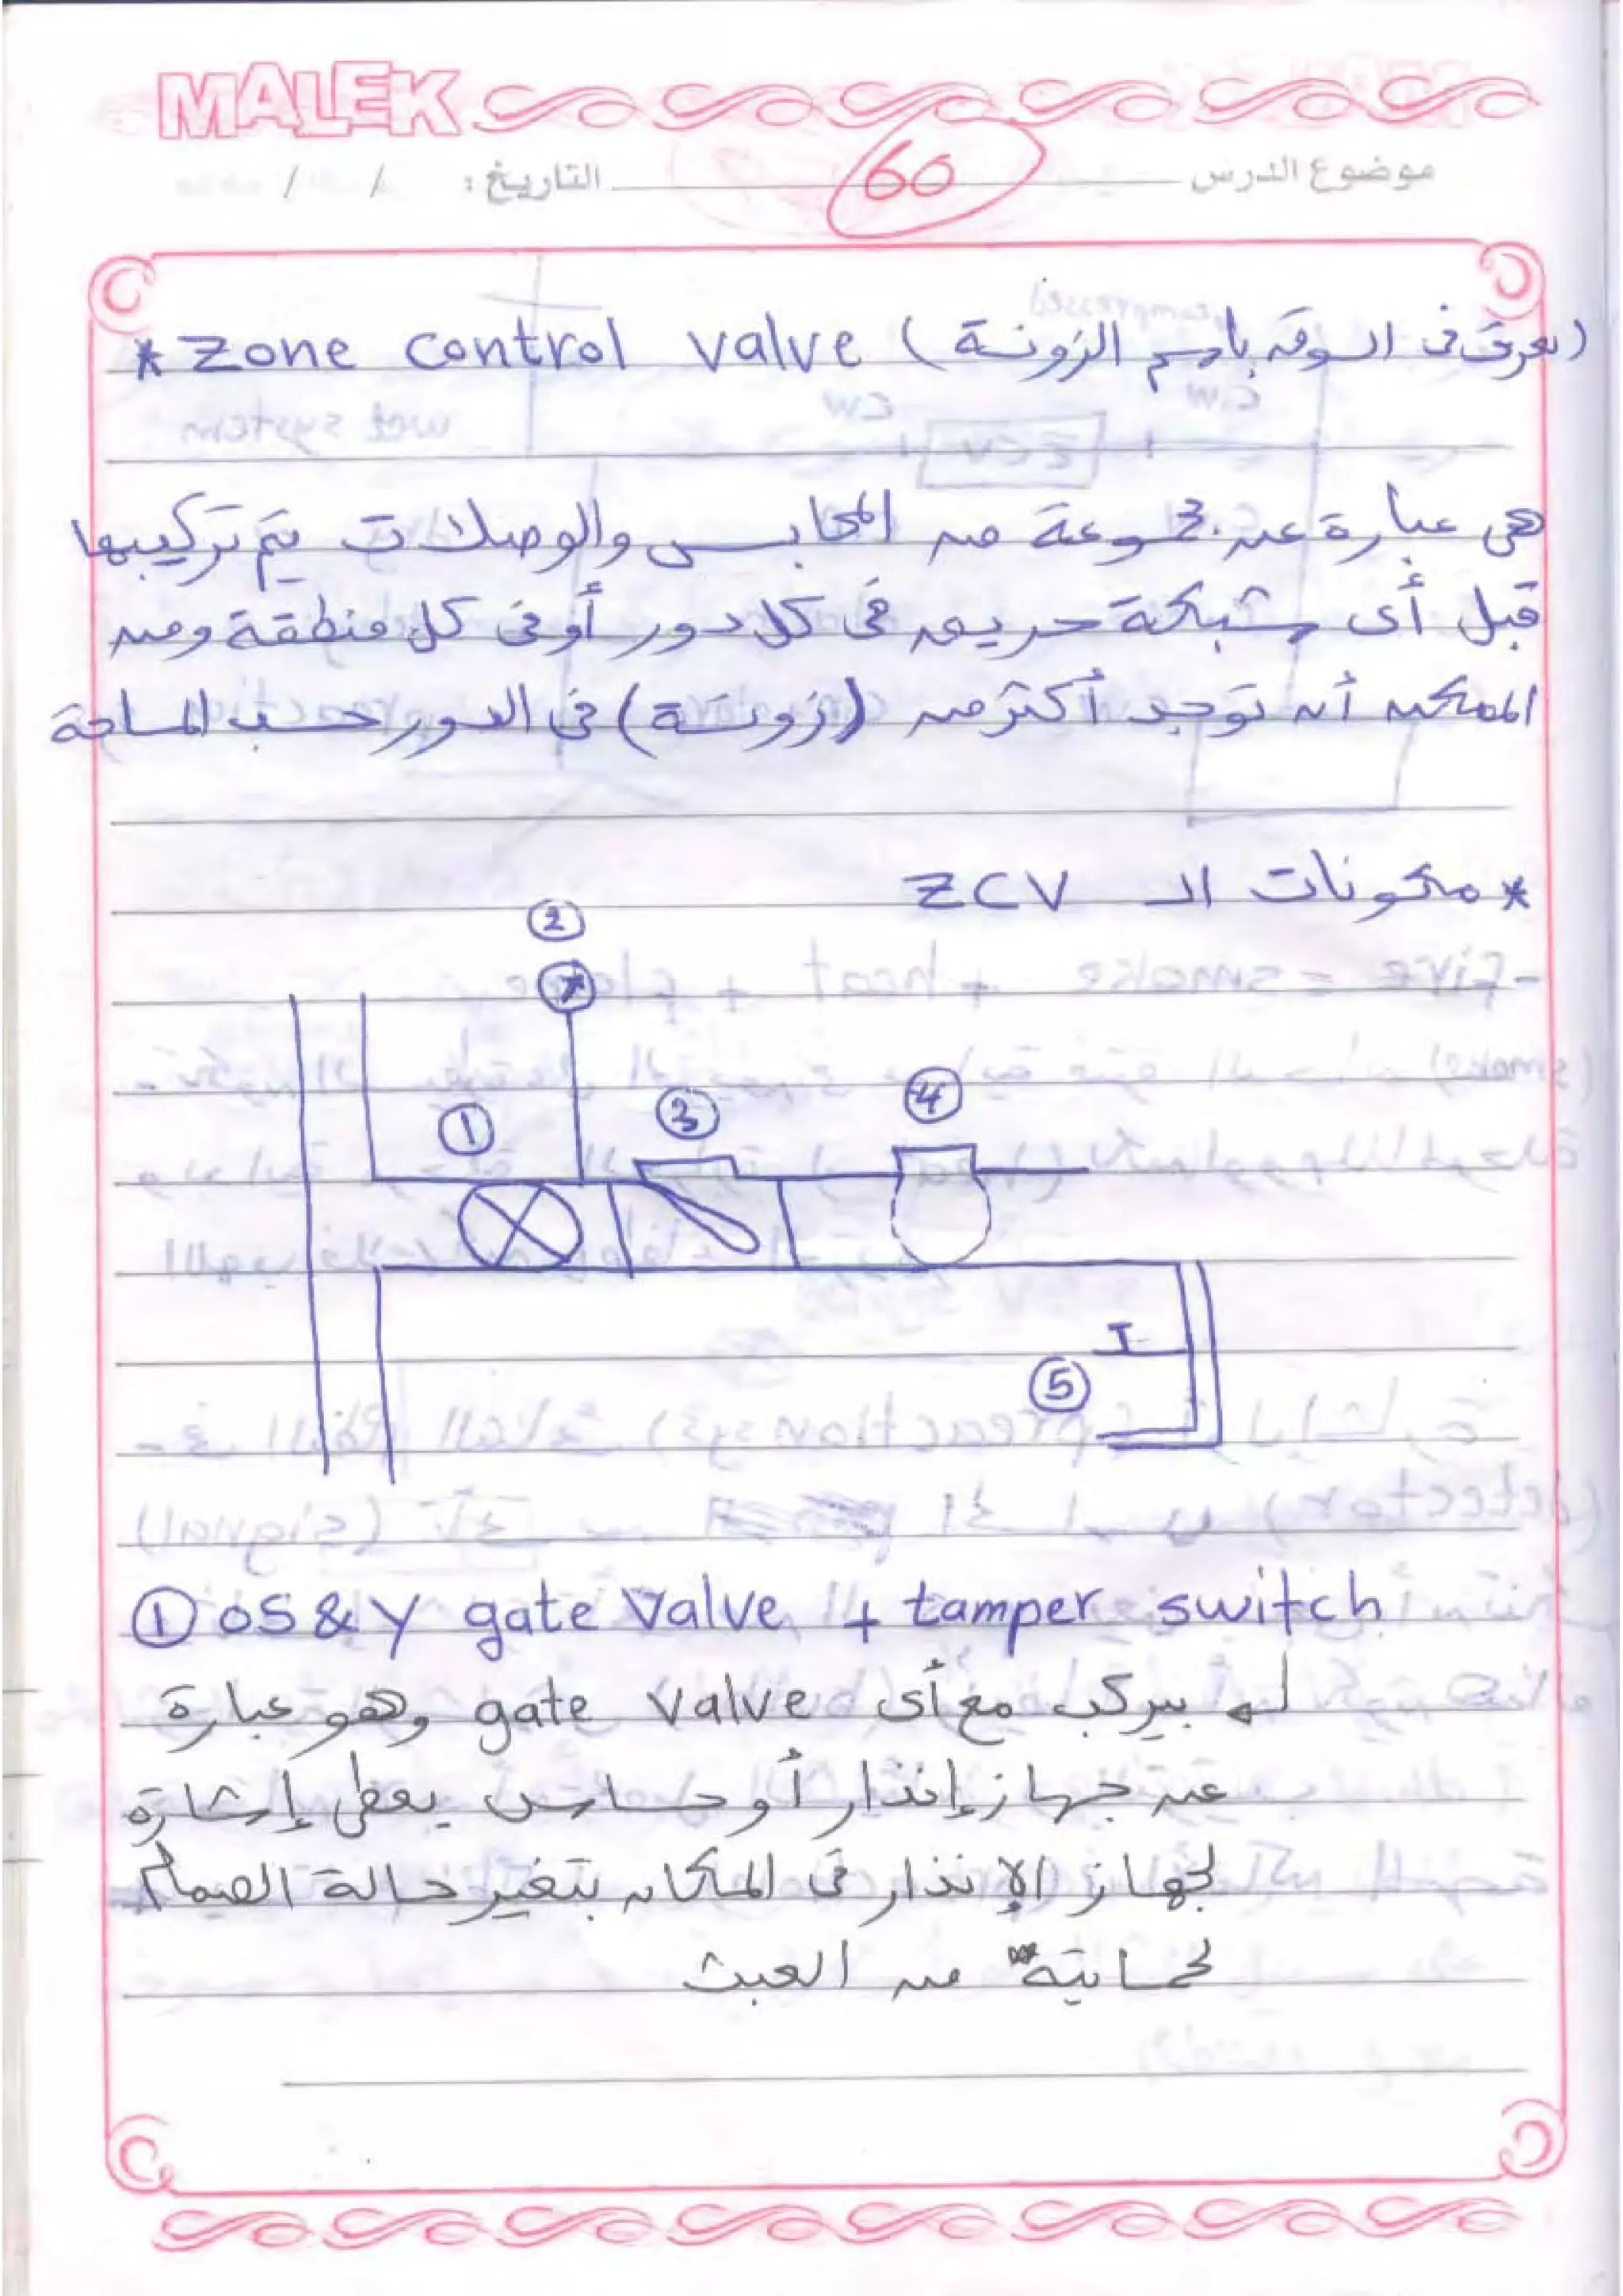 MALEK
موضوع الدرس 60 التاريخ: / /
* Zone control valve (تعرف فى السوق باسم الزونة)
هى عبارة عن مجموعة من المحابس والوصلات يتم تركيبها
قبل أى شبكة حريق فى كل دور أو فى كل منطقة ومن
الممكن أن توجد أكثر من (زونة) فى الدور حسب المساحة
* مكونات الـ ZCV
2
1
3
4
5
① OS&Y gate valve + tamper switch
بيركب مع أى gate valve وهو عبارة
عن جهاز إنذار أو حساس يعطى إشارة
لجهاز الإنذار فى المكان بتغير حالة الصمام
لحمايتة من العبث